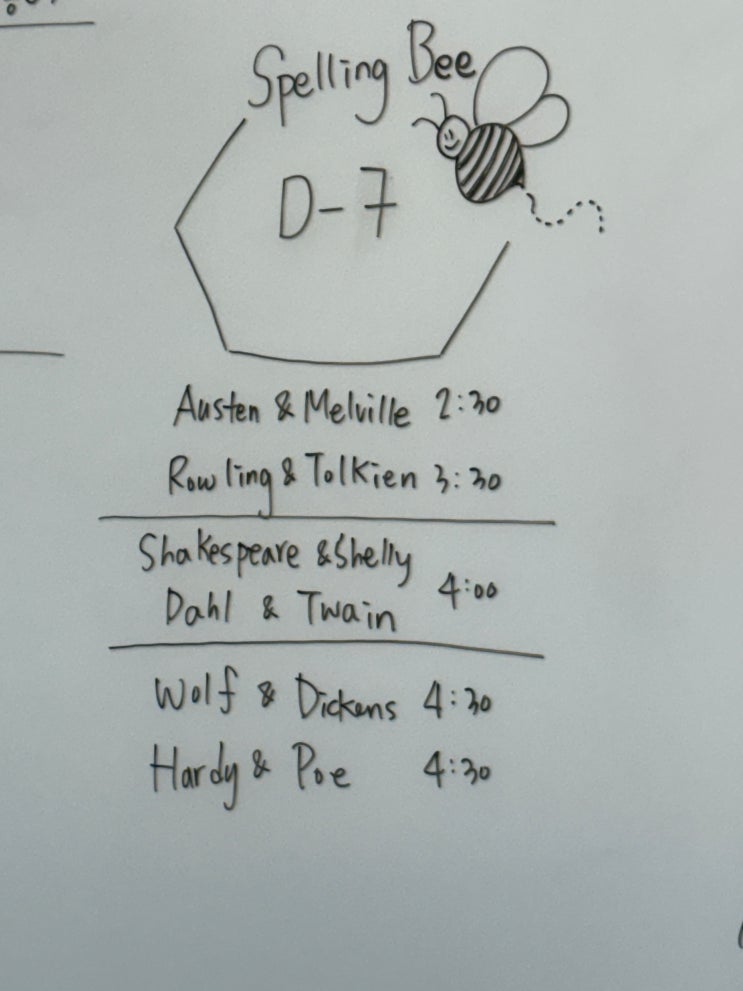 Spelling Bee
D-7
Austen & Melville 2:30
Rowling & Tolkien 3:30
Shakespeare & Shelly
4:00
Dahl & Twain
Wolf & Dickens 4:30
Hardy & Poe 4:30